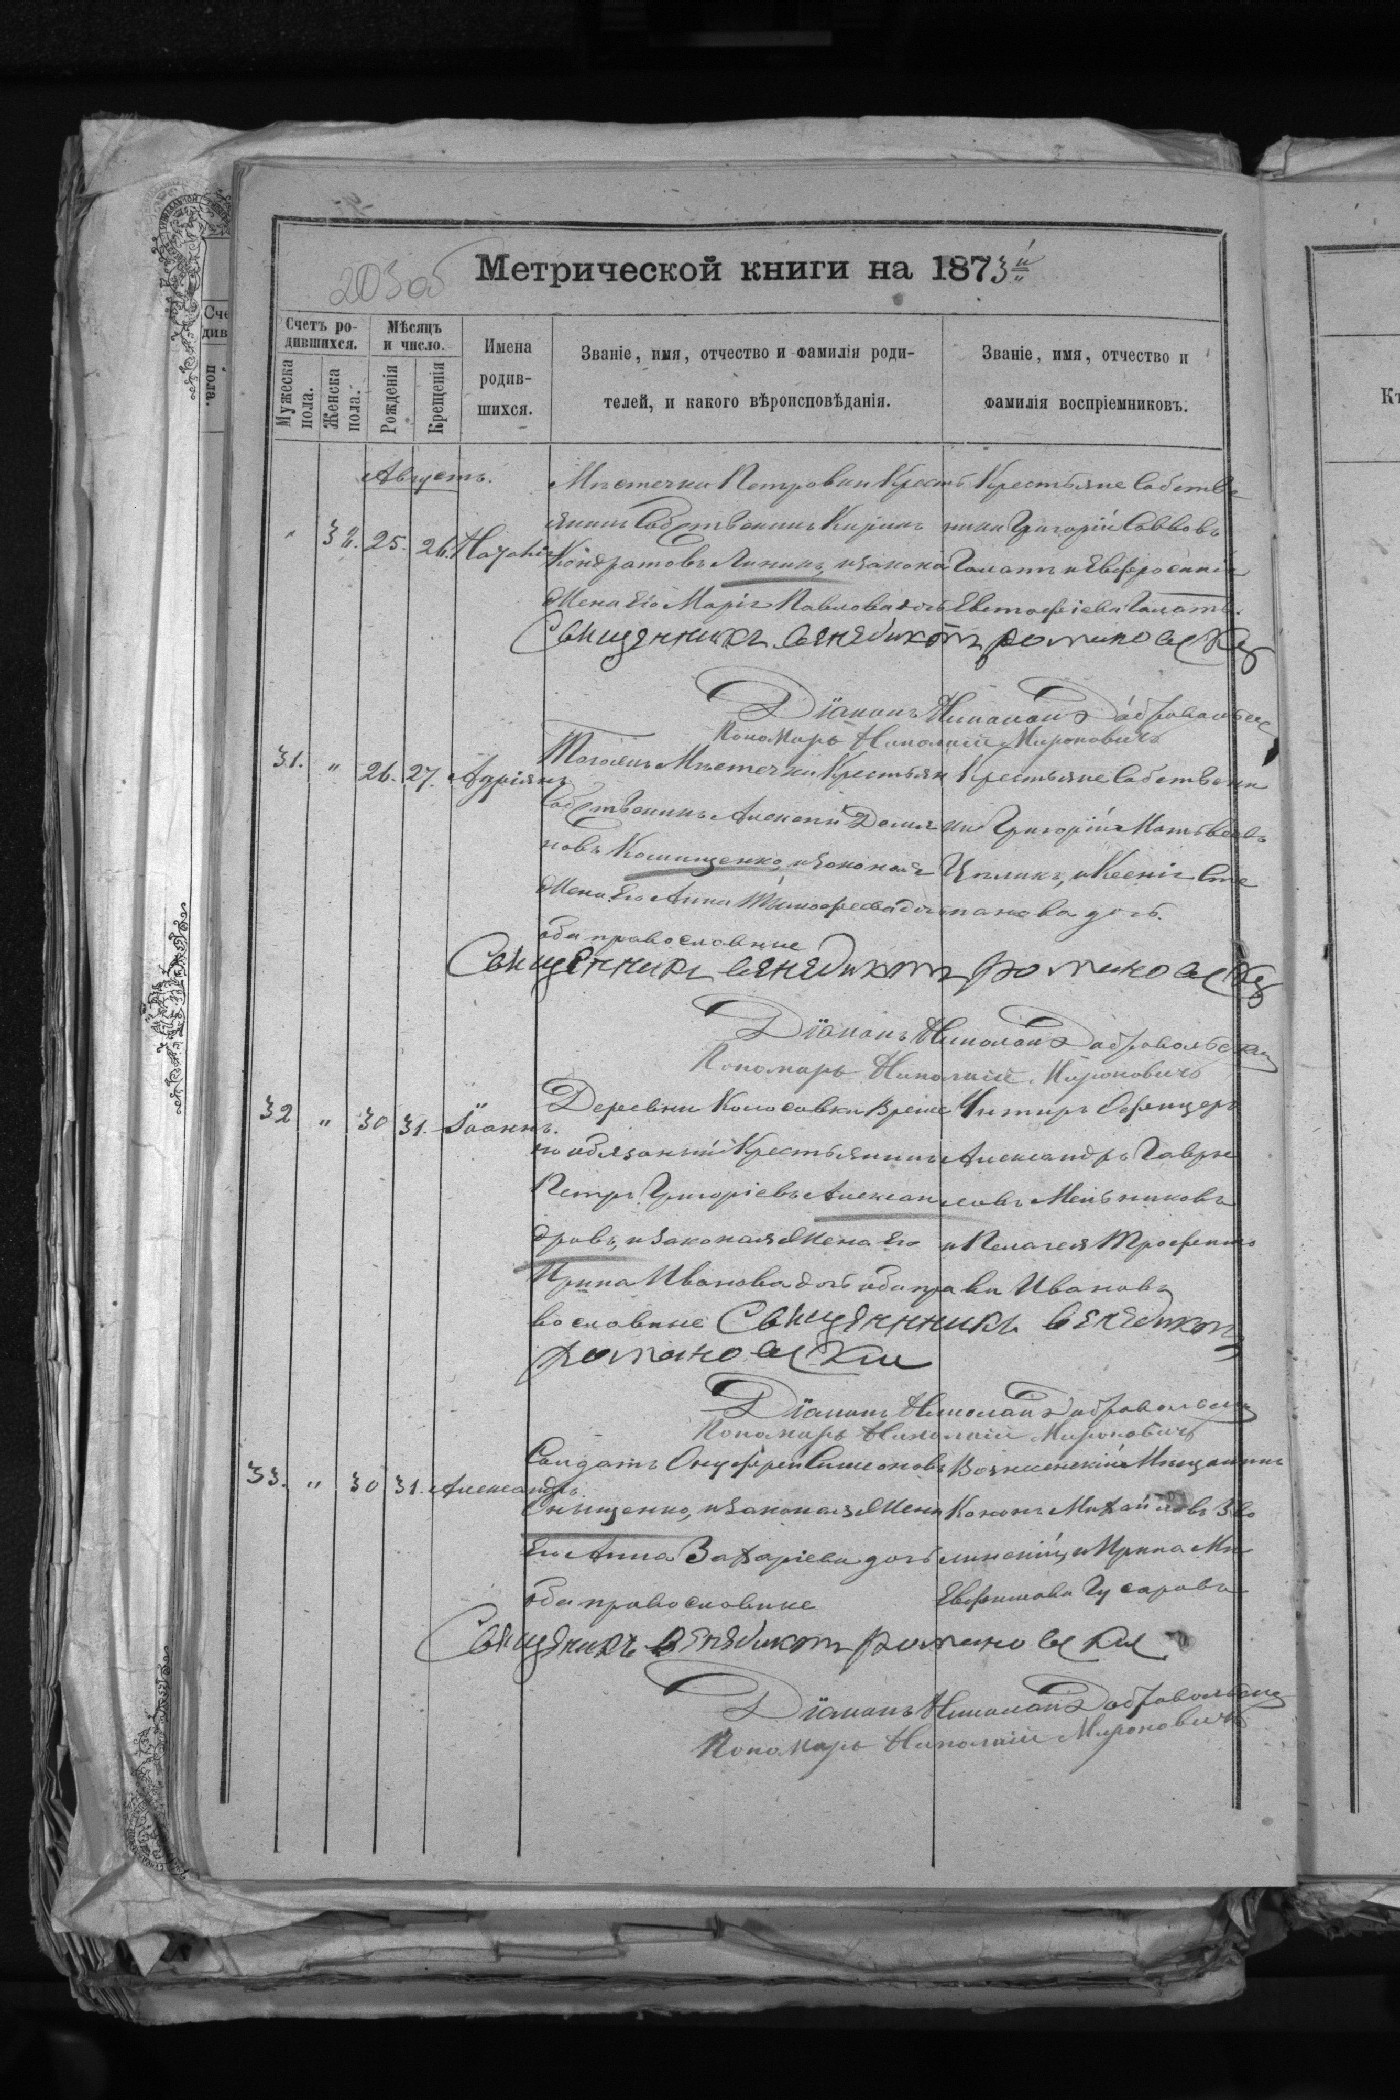 203 об
Метрической книги на 1873й
Счетъ ро-
дившихся.
Мужеска пола.
Женска пола.
Мѣсяцъ
и число.
Рожденія
Крещенія
Имена
родив-
шихся.
Званіе, имя, отчество и фамилія роди-
телей, и какого вѣроисповѣданія.
Званіе, имя, отчество и
фамилія воспріемниковъ.
Августъ.
25. 26. Наталія
Мѣстечка Петровки Кресть
янинъ Собственникъ Кирилъ
Кондратовъ
жена его Марія Павлова дочь
Крестьяне Собстве
ники Григорій Саввовъ
Галатъ и Евфросинія
Галатъ.
Священникъ Венедиктъ Романовскій
Діаконъ Николай Добровольскій
Пономарь Николай Мироновичъ
31. " 26. 27. Адріанъ
Тогоже Мѣстечка Крестьян
Собственникъ Алексѣй Доміа
новъ и законая
Жена его Анна Тимофеева дочь
оба православные
Крестьяне Собственни
ки Григорій Матвѣевъ
и Ксенія Сте
панова дочь.
Священникъ Венедиктъ Романовскій
Діаконъ Николай Добровольскій
Пономарь Николай Мироновичъ
32 " 30 31. Іоаннъ.
Деревни Колосовки Време
но обязаный Крестьянинъ
Петръ Григоріевъ Алексан
дровъ, и законая Жена его
Ирина Иванова дочь оба пра
вославные
Унтеръ Офицеръ
Александръ Гаври
ловъ Мельниковъ
и Пелагея Трофимо
ва Ивановъ
Священникъ Венедиктъ
Романовскій
Діаконъ Николай Добровольскій
Пономарь Николай Мироновичъ
33. " 30 31. Александръ.
Солдатъ Онуфрей Симеоновъ
и законая Жена
его Анна Захаріева дочь
оба православные
Вознесенскій Мещанинъ
Кононъ Михайловъ
и Ирина
Евфимова Гусаровъ
Священникъ Венедиктъ Романовскій
Діаконъ Николай Добровольскій
Пономарь Николай Мироновичъ